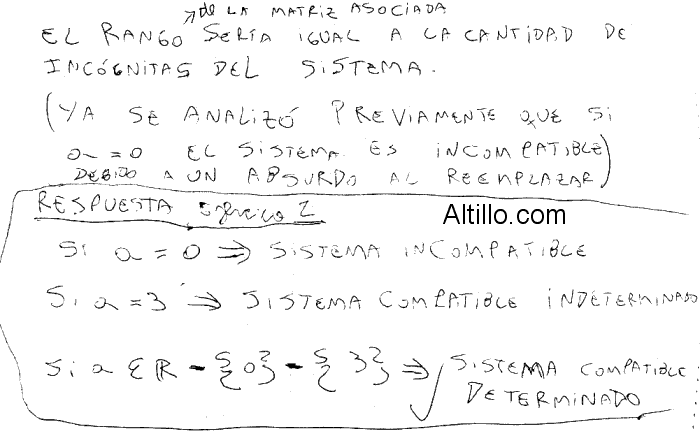 de LA MATRIZ ASOCIADA
EL RANGO SERÍA IGUAL A LA CANTIDAD DE
INCÓGNITAS DEL SISTEMA.
(YA SE ANALIZÓ PREVIAMENTE QUE SI
a = 0 EL SISTEMA ES INCOMPATIBLE
DEBIDO A UN ABSURDO AL REEMPLAZAR)
RESPUESTA Ejercicio 2
Altillo.com
Si a = 0 ⇒ SISTEMA INCOMPATIBLE
Si a = 3 ⇒ SISTEMA COMPATIBLE INDETERMINADO
Si a ∈ R - {0} - {3} ⇒ SISTEMA COMPATIBLE
DETERMINADO